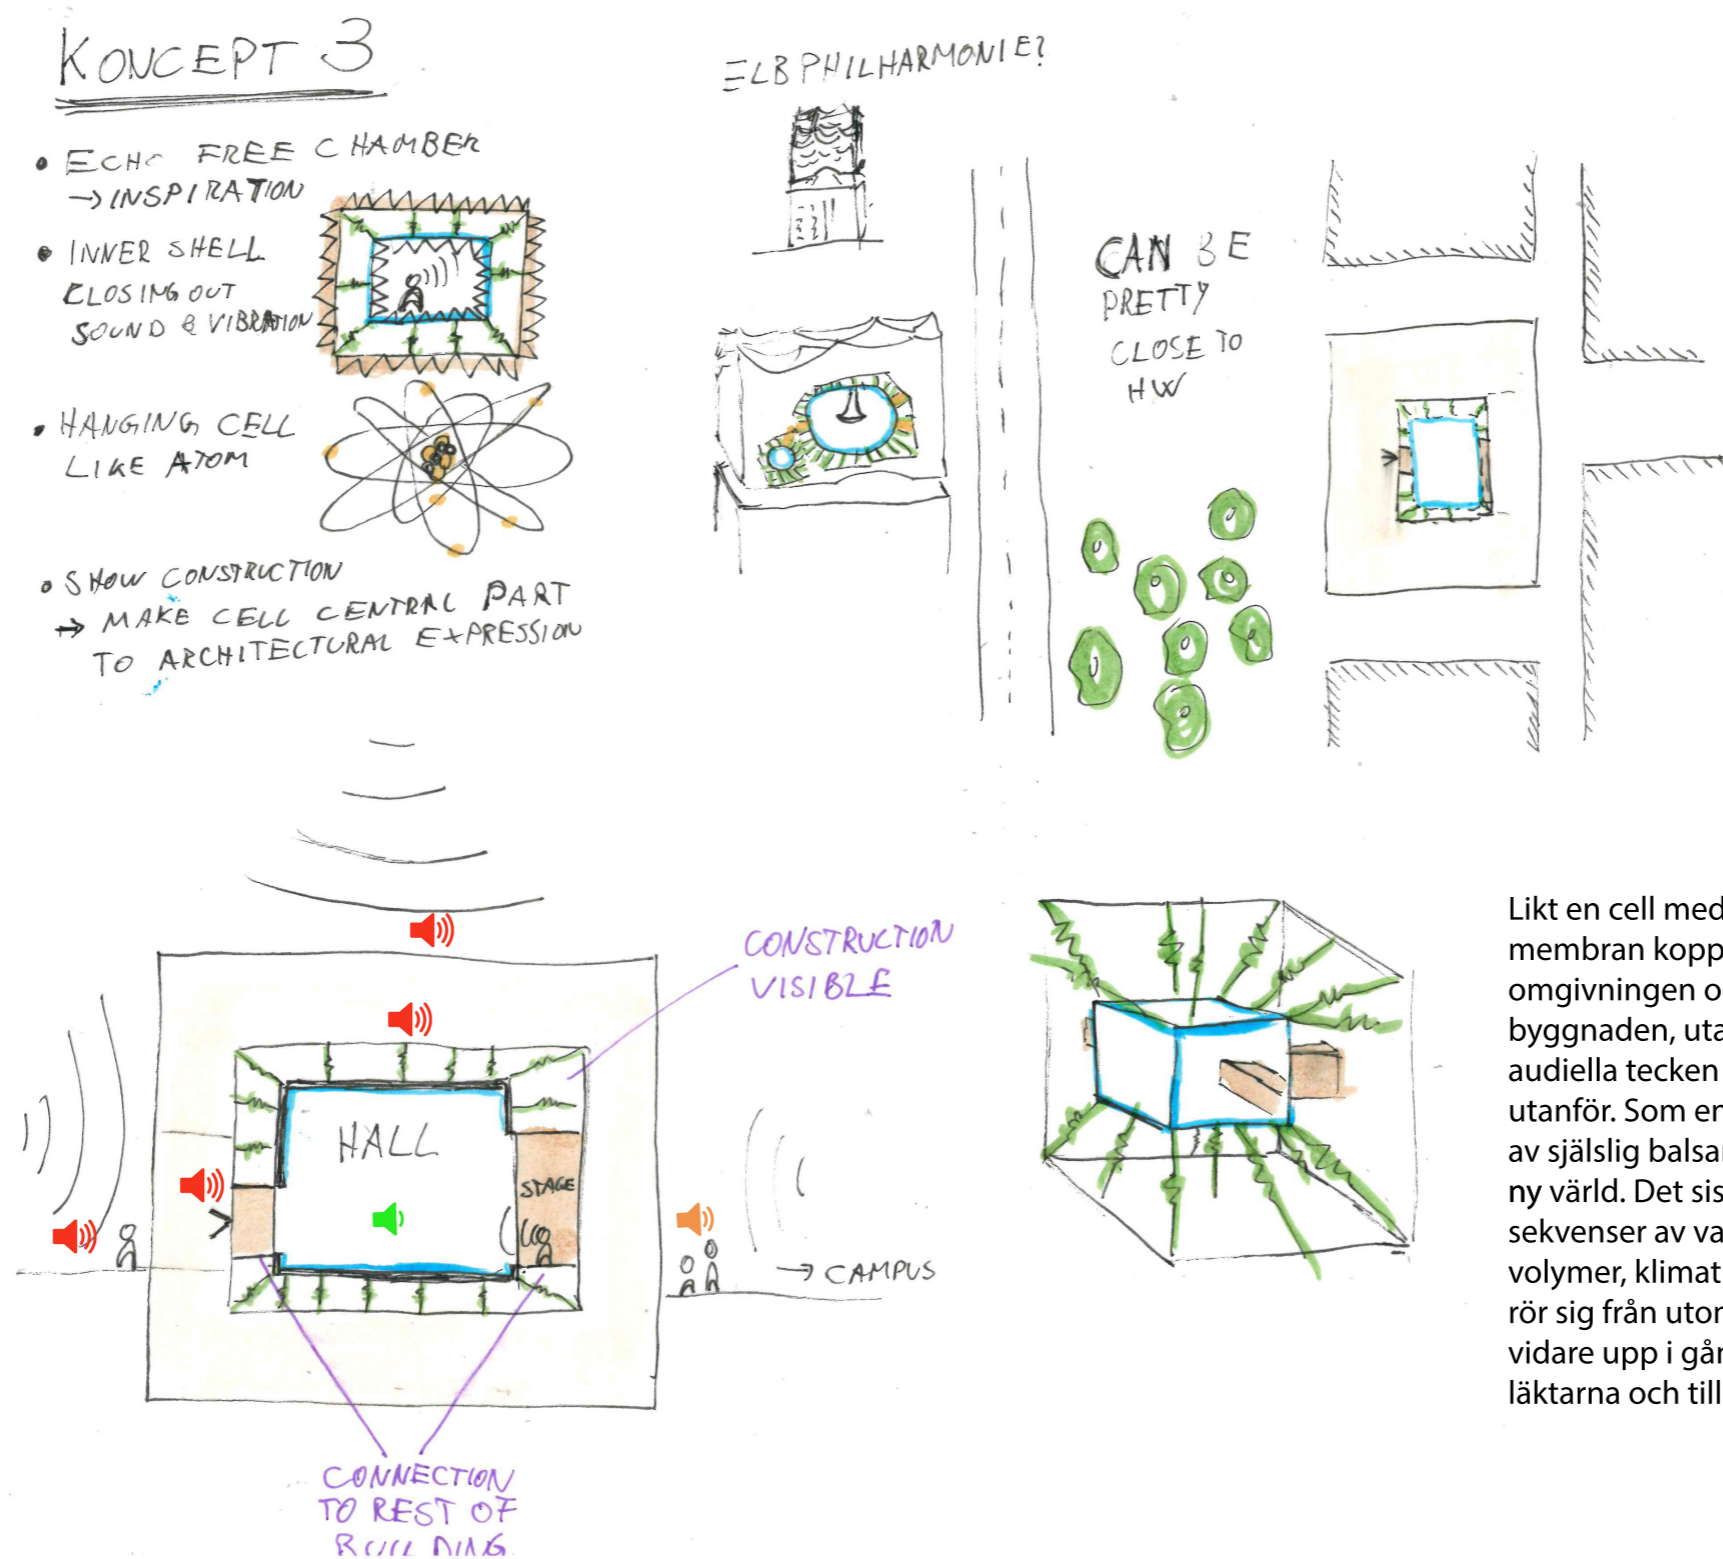 KONCEPT 3
• ECHO FREE CHAMBER
→ INSPIRATION
• INNER SHELL
CLOSING OUT
SOUND & VIBRATION
• HANGING CELL
LIKE ATOM
• SHOW CONSTRUCTION
→ MAKE CELL CENTRAL PART
TO ARCHITECTURAL EXPRESSION
ELBPHILHARMONIE?
CAN BE
PRETTY
CLOSE TO
HW
CONSTRUCTION
VISIBLE
HALL
STAGE
→ CAMPUS
CONNECTION
TO REST OF
BUILDING
Likt en cell med
membran kopp
omgivningen o
byggnaden, uta
audiella tecken
utanför. Som en
av själslig balsa
ny värld. Det sis
sekvenser av va
volymer, klimat
rör sig från uto
vidare upp i går
läktarna och till